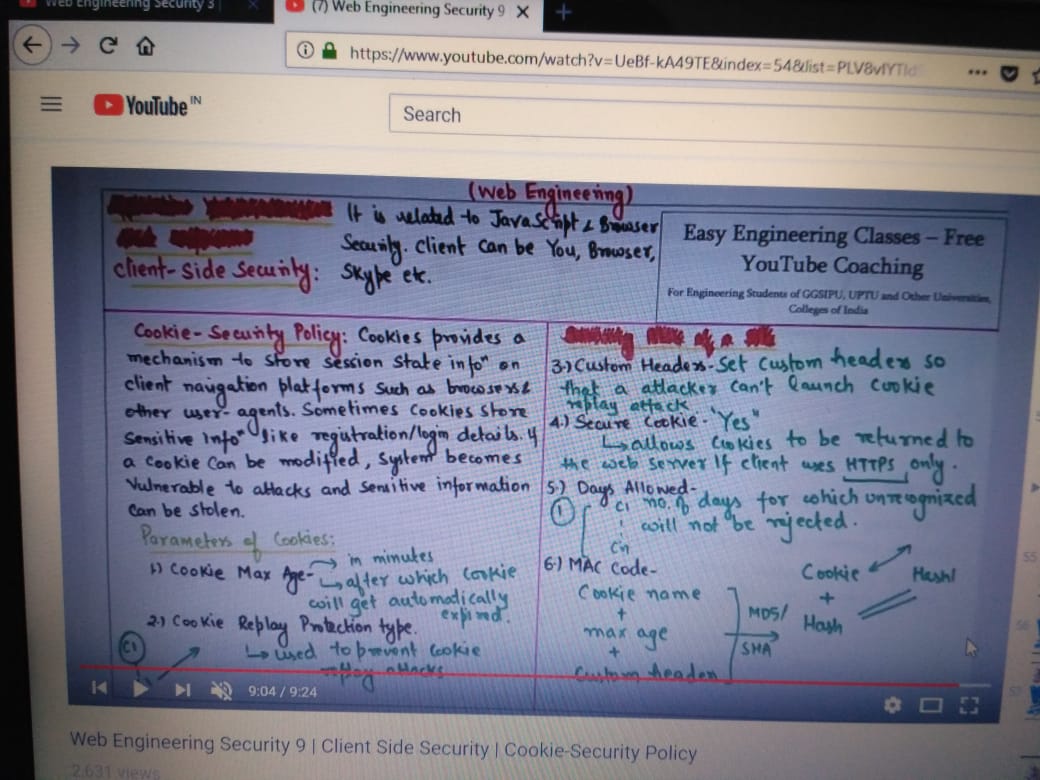 Web Engineering Security 3
(7) Web Engineering Security 9
https://www.youtube.com/watch?v=UeBf-kA49TE&index=54&list=PLV8vIYTId
YouTube IN
Search
(Web Engineering)
It is related to JavaScript & Browser
Security. Client can be You, Browser,
Client-Side Security: Skype etc.
Easy Engineering Classes – Free
YouTube Coaching
For Engineering Students of GGSIPU, UPTU and Other Universities,
Colleges of India
Cookie-Security Policy: Cookies provides a
mechanism to store session state infoⁿ on
client navigation platforms such as browsers &
other user-agents. Sometimes Cookies store
Sensitive Infoⁿ like registration/login details. If
a Cookie Can be modified, System becomes
Vulnerable to attacks and sensitive information
Can be stolen.
Parameters of Cookies:
1.) Cookie Max Age- in minutes
after which Cookie
will get automatically
expired.
2.) Cookie Replay Protection type.
C1
used to prevent Cookie
replay attacks
3.) Custom Headers- Set Custom headers so
that a attacker can't launch Cookie
replay attack
4.) Secure Cookie- "Yes"
allows Cookies to be returned to
the web server If client uses HTTPS only.
5.) Days Allowed-
1
C1
Cn
no. of days for which unrecognized
will not be rejected.
6.) MAC Code-
Cookie name
+
max age
+
Custom header
MD5/
SHA
Cookie
+
Hash
Hash1
9:04 / 9:24
55
56
57
Web Engineering Security 9 | Client Side Security | Cookie-Security Policy
2,631 views